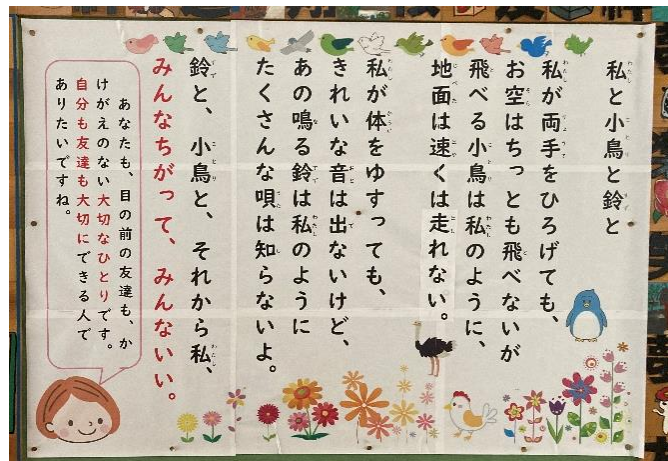 私と小鳥と鈴と
私が両手をひろげても、
お空はちっとも飛べないが
飛べる小鳥は私のように、
地面は速くは走れない。
私が体をゆすっても、
きれいな音は出ないけど、
あの鳴る鈴は私のように
たくさんな唄は知らないよ。
鈴と、小鳥と、それから私、
みんなちがって、みんないい。
あなたも、目の前の友達も、か
けがえのない大切なひとりです。
自分も友達も大切にできる人で
ありたいですね。